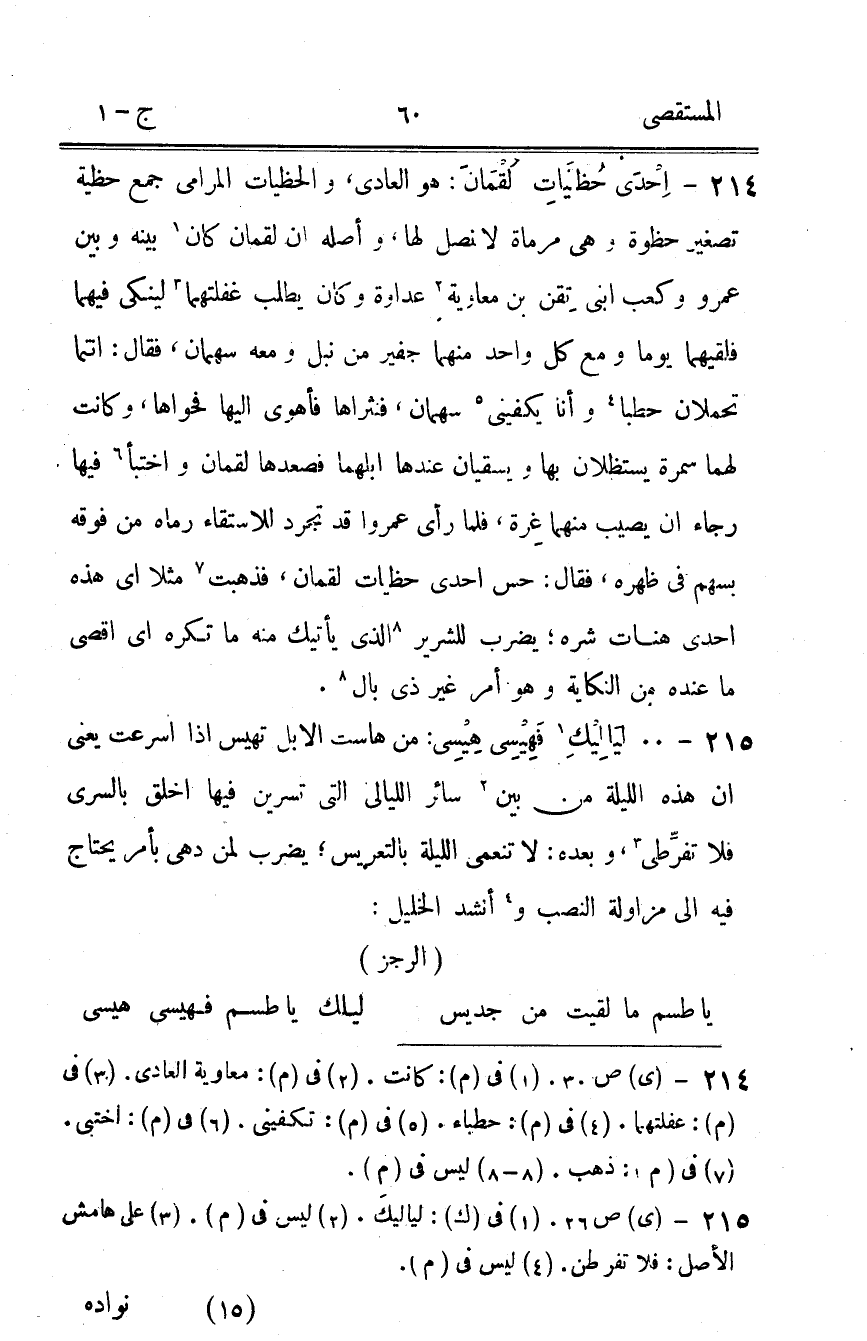 المستقصى ٦٠ ج – ١
٢١٤ – إِحْدَىٰ حُظَيَّاتِ لُقْمَانَ: هو العادى، و الحظيات المرامى جمع حظية
تصغير حظوة و هى مرماة لا نصل لها، و أصله ان لقمان كان١ بينه و بين
عمرو و كعب ابنى تِقن بن معاوية٢ عداوة وكان يطلب غفلتهما٣ لينكى فيهما
فلقيهما يوما و مع كل واحد منهما جفير من نبل و معه سهمان، فقال: انتما
تحملان حطبا٤ و أنا يكفينى٥ سهمان، فنثراها فأهوى اليها فحواها، وكانت
لهما سمرة يستظلان بها و يسقيان عندها ابلهما فصعدها لقمان و اختبأ٦ فيها
رجاء ان يصيب منهما غِرة، فلما رأى عمروا قد تجرد للاستقاء رماه من فوقه
بسهم فى ظهره، فقال: حس احدى حظيات لقمان، فذهبت٧ مثلا اى هذه
احدى هنات شره؛ يضرب للشرير ٨الذى يأتيك منه ما تكره اى اقصى
ما عنده من النكاية و هو أمر غير ذى بال٨.
٢١٥ – ٠٠ لَيَالِيْكِ١ فَهِيْسِى هِيْسِى: من هاست الابل تهيس اذا اسرعت يعنى
ان هذه الليلة من بين٢ سائر الليالى التى تسرين فيها اخلق بالسرى
فلا تفرّطى٣، و بعده: لا تنعمى الليلة بالتعريس؛ يضرب لمن دهى بأمر يحتاج
فيه الى مزاولة النصب و٤ أنشد الخليل:
(الرجز)
يا طسم ما لقيت من جديس ليلك يا طسم فهيسى هيسى
٢١٤ – (ى) ص ٣٠. (١) فى (م): كانت. (٢) فى (م): معاوية العادى. (٣) فى
(م): عفلتهما. (٤) فى (م): حطباء. (٥) فى (م): تكفينى. (٦) فى (م): اختبى.
(٧) فى (م): ذهب. (٨–٨) ليس فى (م).
٢١٥ – (ى) ص ٢٦. (١) فى (ك): لياليكَ. (٢) ليس فى (م). (٣) على هامش
الأصل: فلا تفرطن. (٤) ليس فى (م).
(١٥) نواده